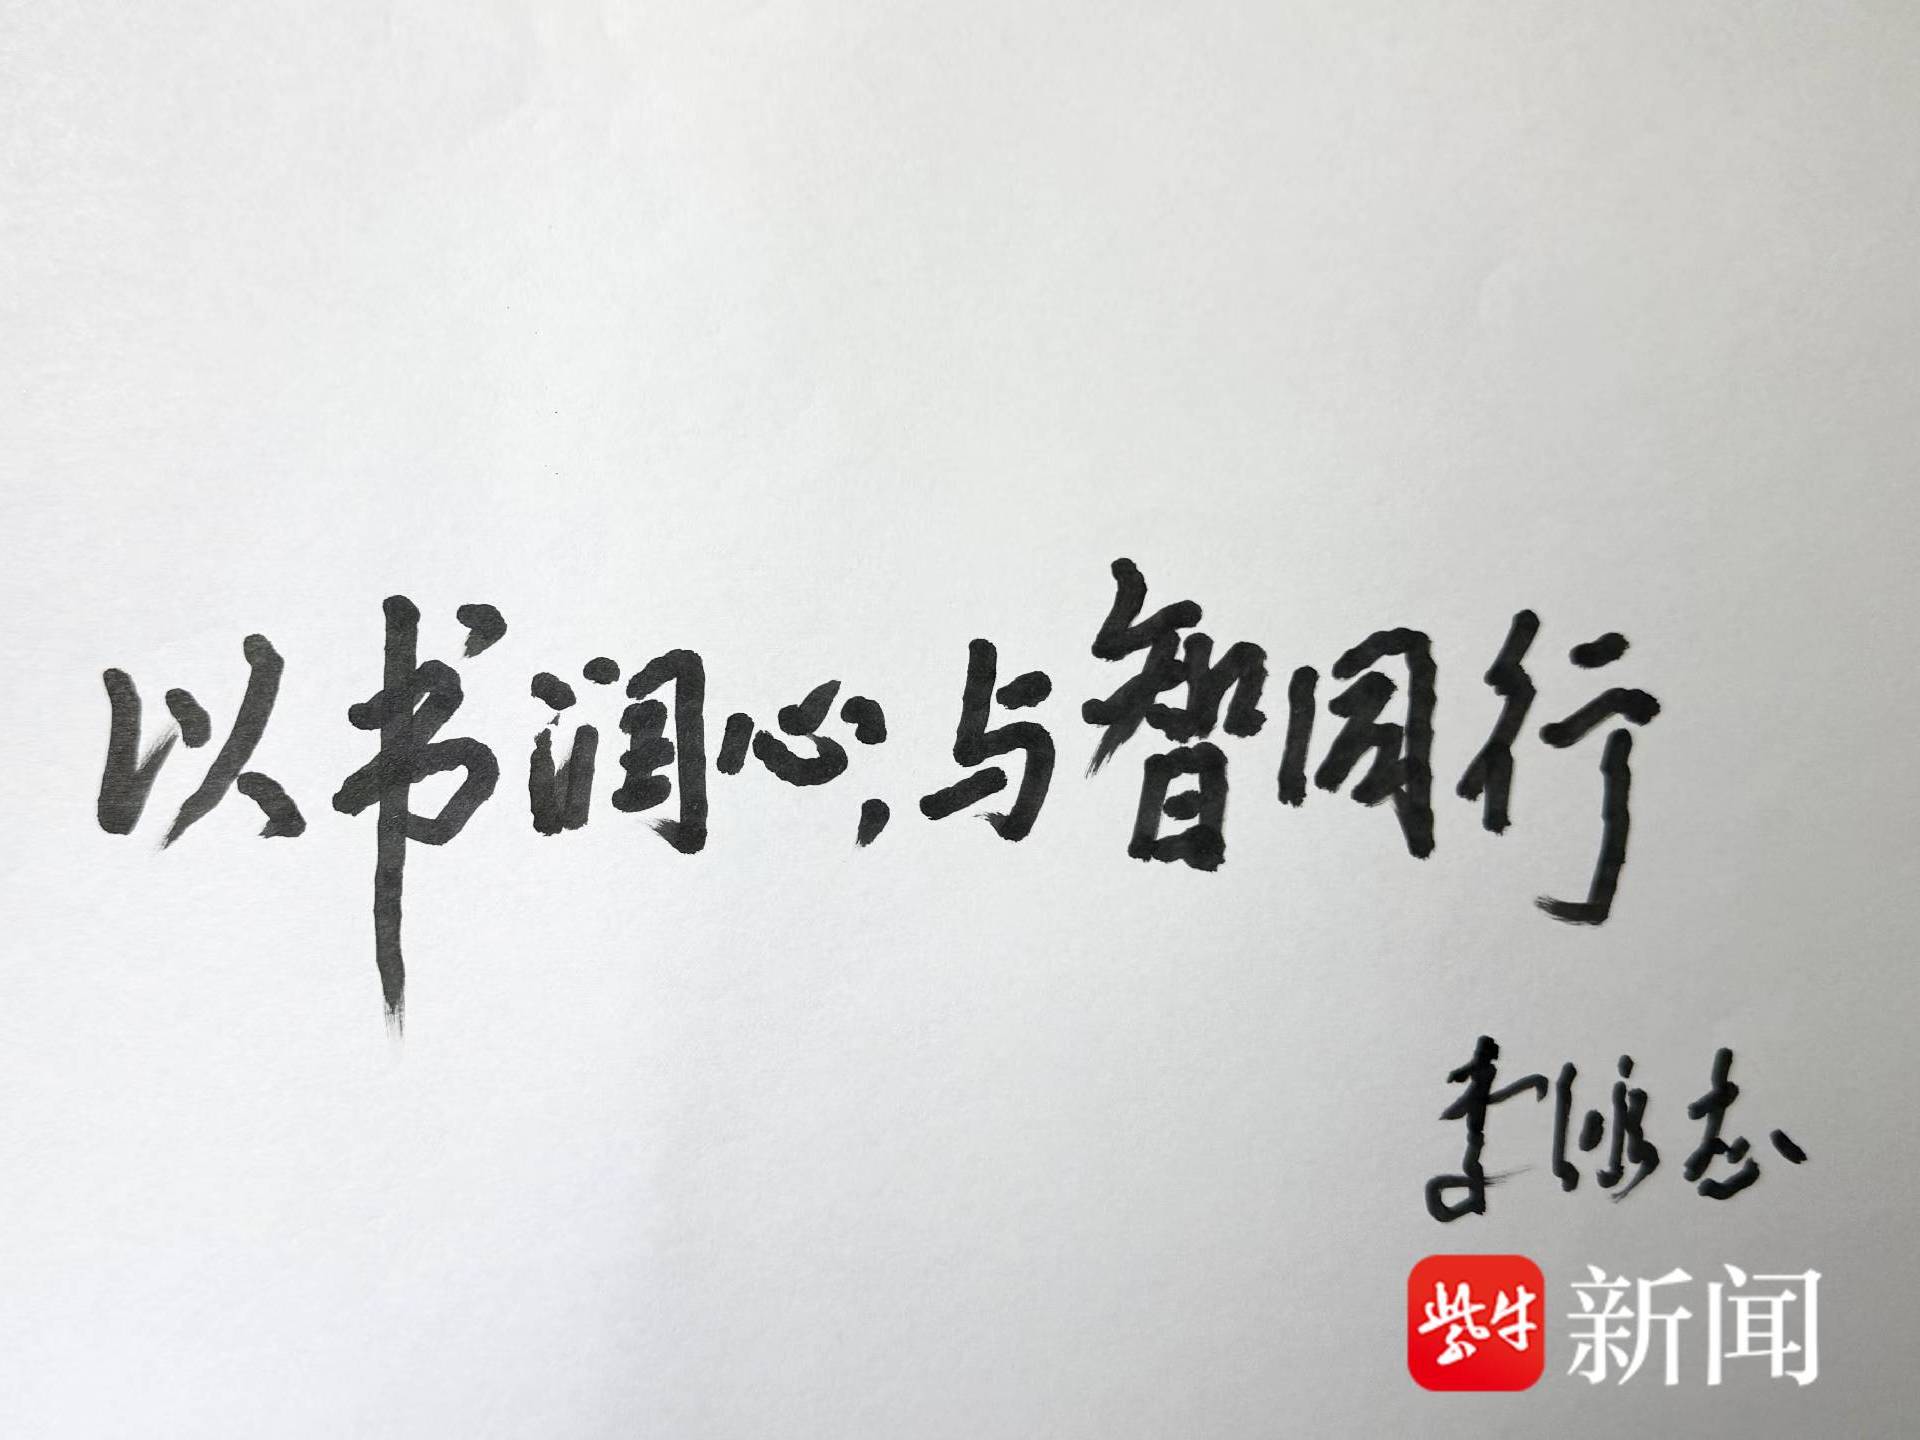 以书润心，与智同行
李浪志
紫牛 新闻